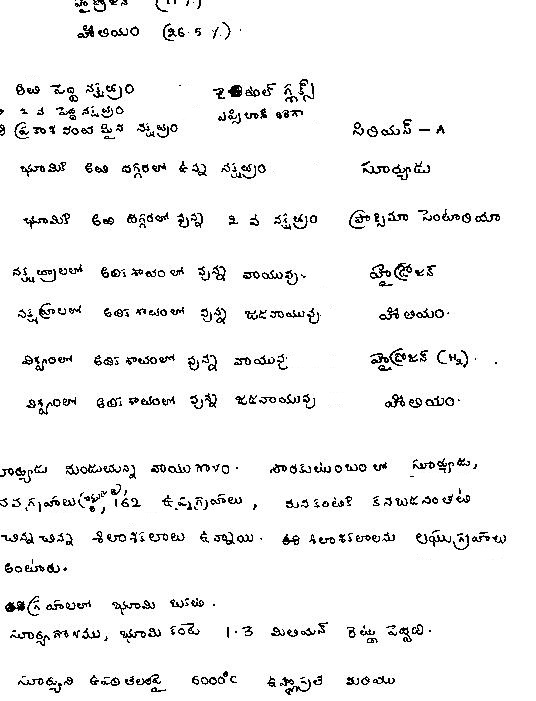 హైడ్రోజన్ (71%)
హీలియం (26.5%).
అతి పెద్ద నక్షత్రం గ్లక్సీ
2 వ పెద్ద నక్షత్రం ఎప్సిలాన్
ప్రకాశవంతమైన నక్షత్రం సిరియస్ - A
భూమికి అతి దగ్గరలో ఉన్న నక్షత్రం సూర్యుడు
భూమికి అతి దగ్గరలో వున్న 2 వ నక్షత్రం ప్రాక్సిమా సెంటారియా
నక్షత్రాలలో అధిక శాతంలో వున్న వాయువు. హైడ్రోజన్
నక్షత్రాలలో అధిక శాతంలో వున్న జడవాయువు హీలియం.
విశ్వంలో అధిక శాతంలో వున్న వాయువు హైడ్రోజన్ (H2).
విశ్వంలో అధిక శాతంలో వున్న జడవాయువు హీలియం.
సూర్యుడు మండుచున్న వాయుగోళం. సౌరకుటుంబంలో సూర్యుడు,
నవగ్రహాలు, 162 ఉపగ్రహాలు, మనకంటికి కనబడనంతటి
చిన్న చిన్న శిలాశకలాలు ఉన్నాయి. ఈ శిలాశకలాలను లఘుగ్రహాలు
అంటారు.
గ్రహాలలో భూమి ఒకటి.
సూర్యగోళము, భూమి కంటె 1.3 మిలియన్ రెట్లు పెద్దది.
సూర్యుని ఉపరితలంపై 6000°C ఉష్ణోగ్రత మరియు